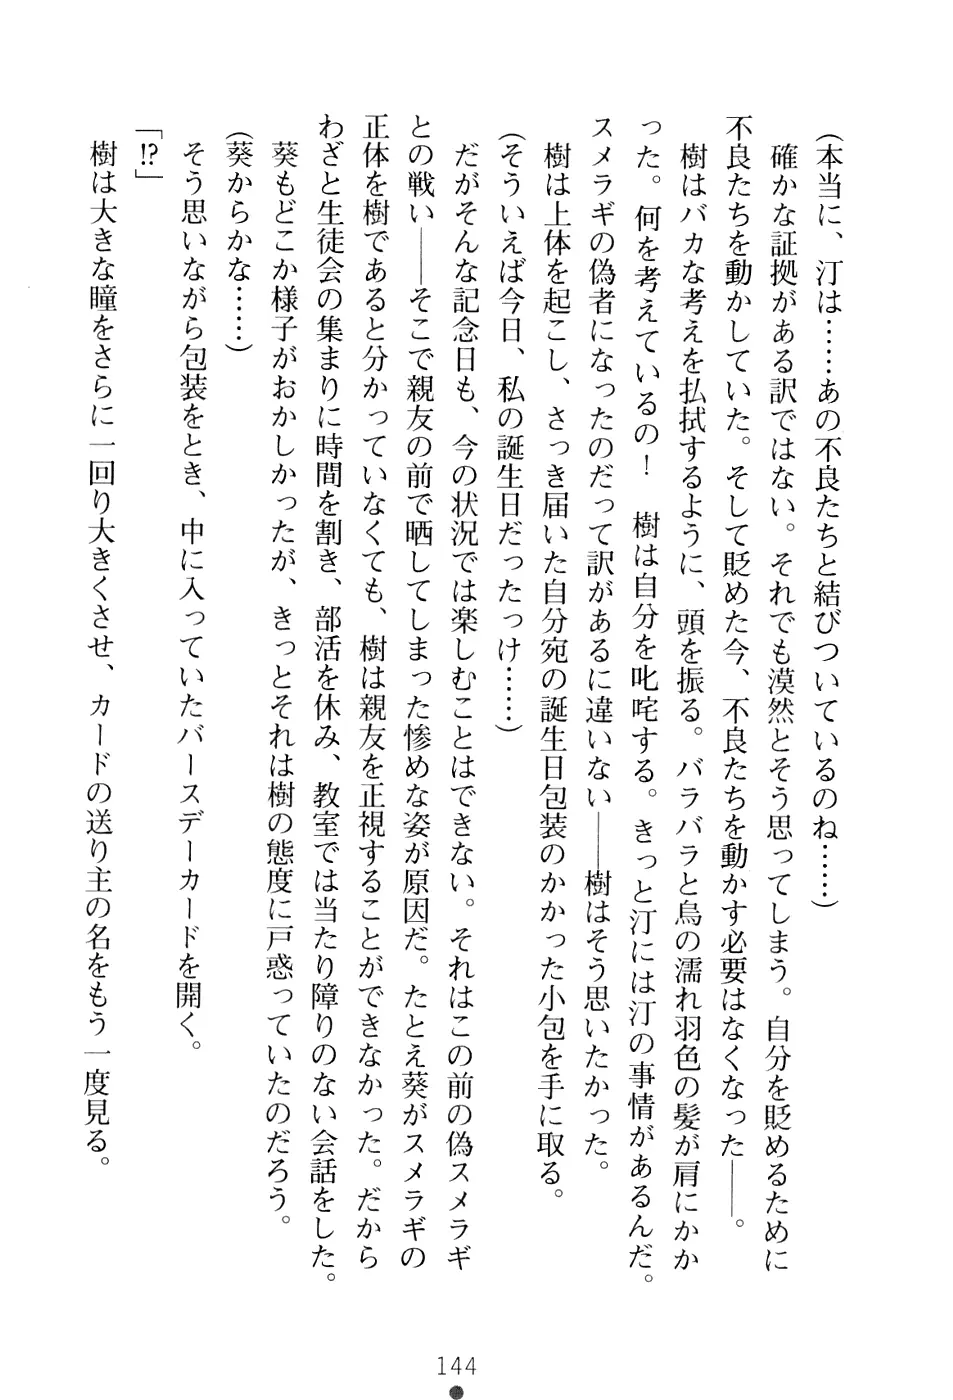 (本当に、汀は……あの不良たちと結びついているのね……)
確かな証拠がある訳ではない。それでも漠然とそう思ってしまう。自分を貶めるために
不良たちを動かしていた。そして貶めた今、不良たちを動かす必要はなくなった――。
樹はバカな考えを払拭するように、頭を振る。バラバラと烏の濡れ羽色の髪が肩にかか
った。何を考えているの！　樹は自分を叱咤する。きっと汀には汀の事情があるんだ。
スメラギの偽者になったのだって訳があるに違いない――樹はそう思いたかった。
樹は上体を起こし、さっき届いた自分宛の誕生日包装のかかった小包を手に取る。
(そういえば今日、私の誕生日だったっけ……)
だがそんな記念日も、今の状況では楽しむことはできない。それはこの前の偽スメラギ
との戦い――そこで親友の前で晒してしまった惨めな姿が原因だ。たとえ葵がスメラギの
正体を樹であると分かっていなくても、樹は親友を正視することができなかった。だから
わざと生徒会の集まりに時間を割き、部活を休み、教室では当たり障りのない会話をした。
葵もどこか様子がおかしかったが、きっとそれは樹の態度に戸惑っていたのだろう。
(葵からかな……)
そう思いながら包装をとき、中に入っていたバースデーカードを開く。
「!?」
樹は大きな瞳をさらに一回り大きくさせ、カードの送り主の名をもう一度見る。
144